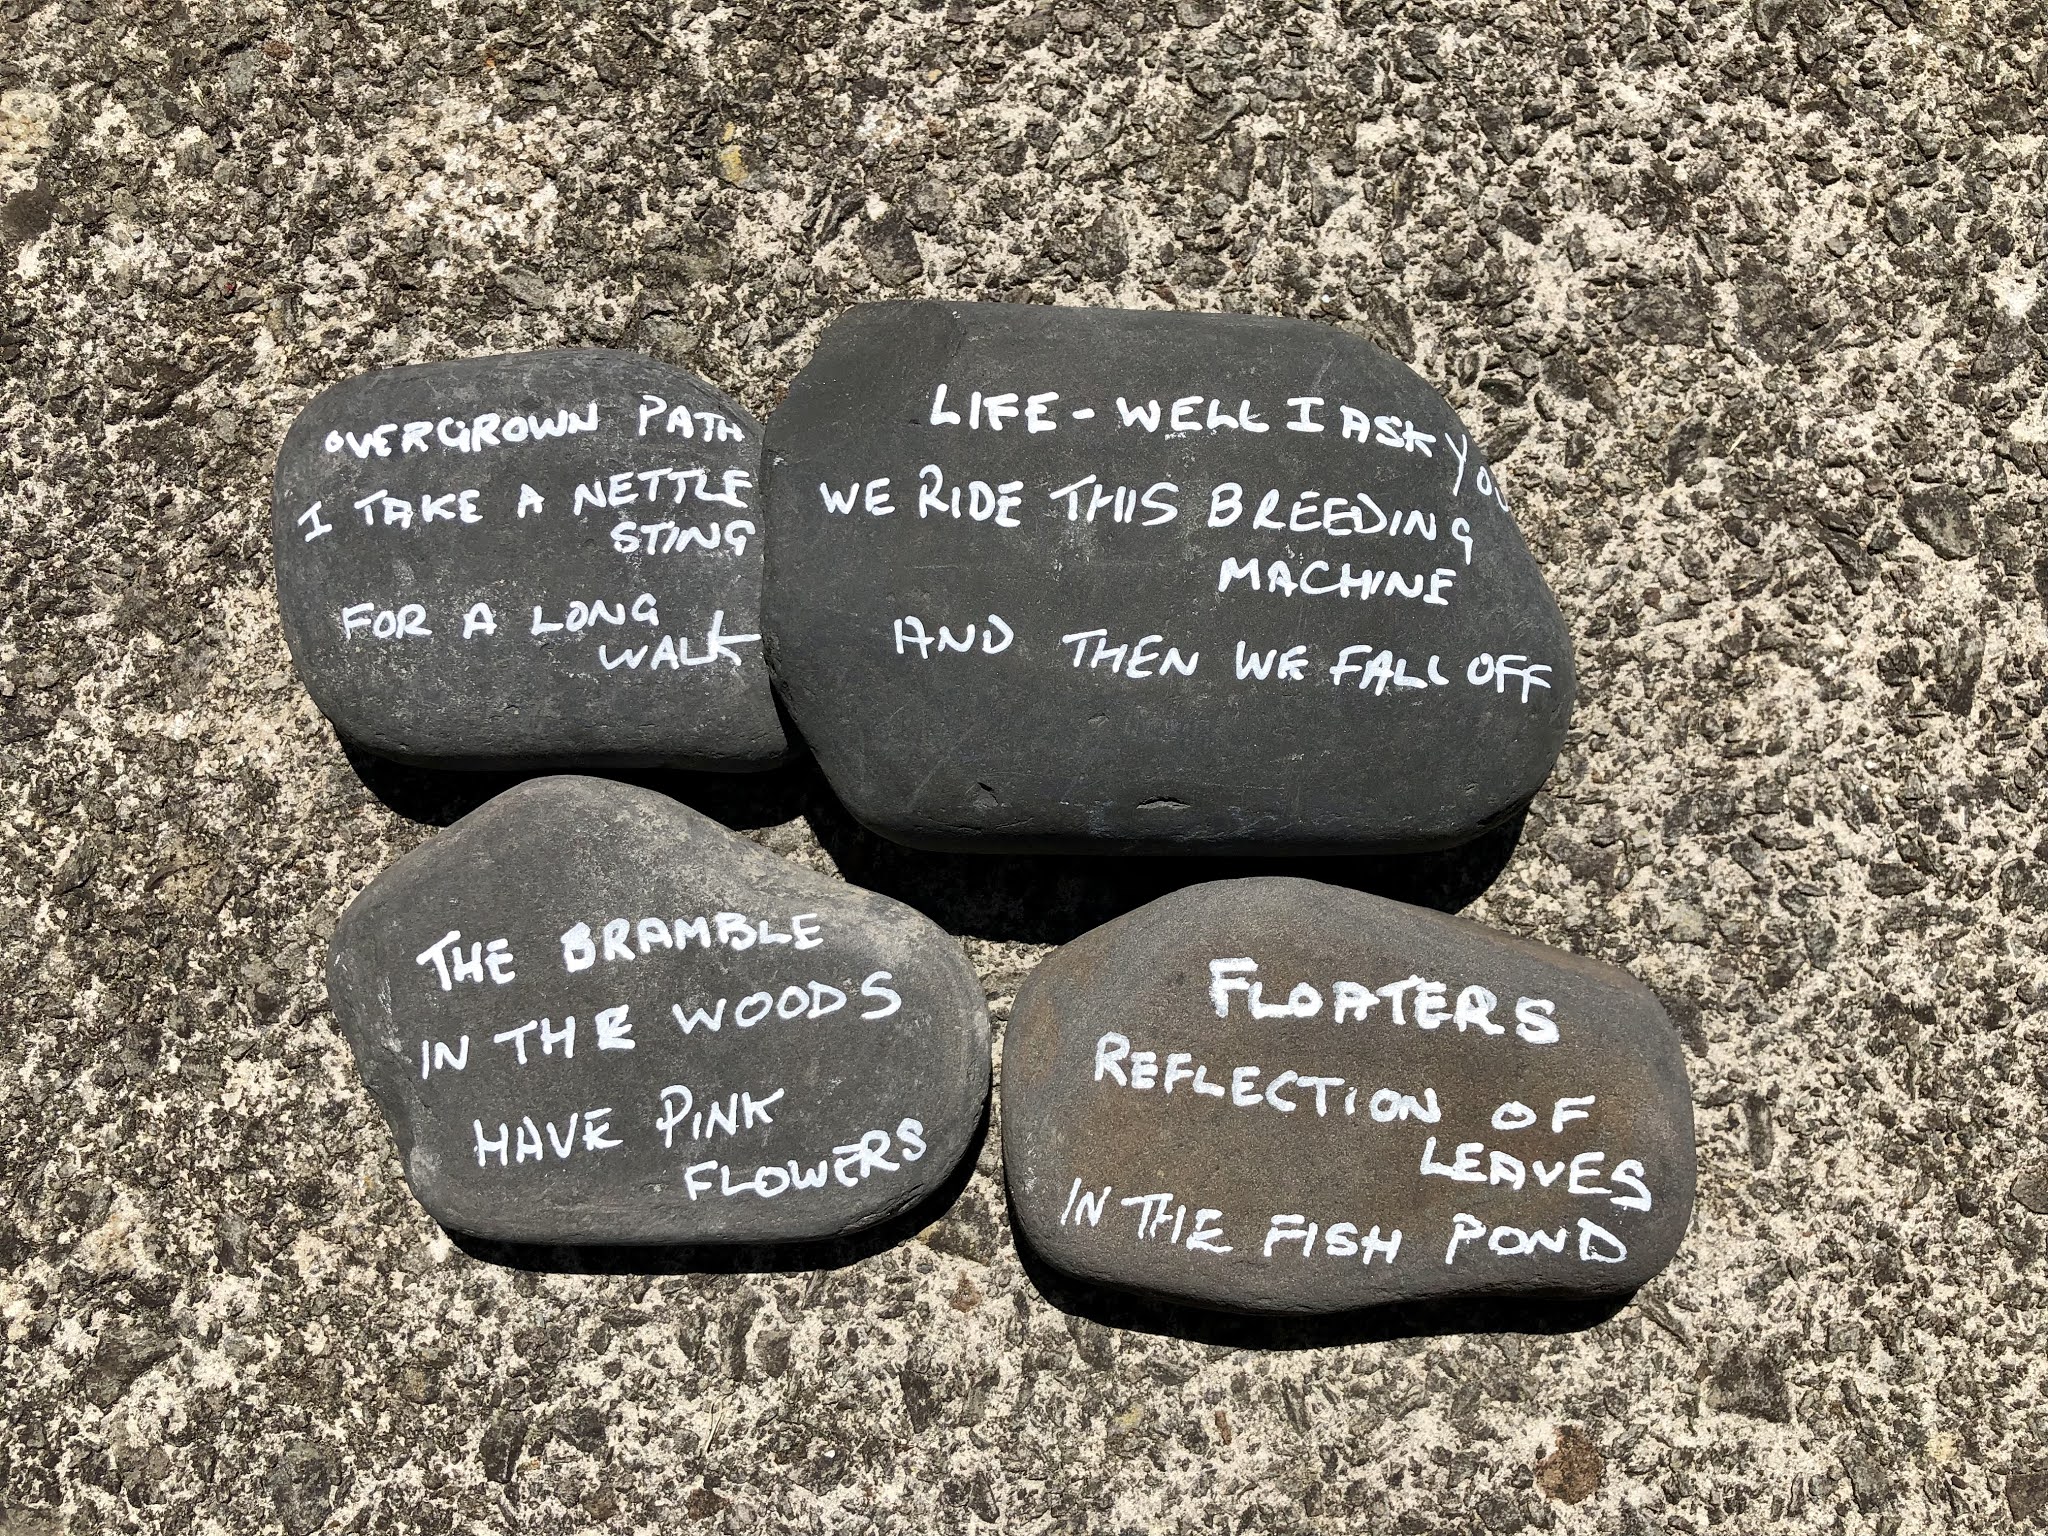 OVERGROWN PATH
I TAKE A NETTLE
STING
FOR A LONG
WALK
LIFE - WELL I ASK YOU
WE RIDE THIS BREEDING
MACHINE
AND THEN WE FALL OFF
THE BRAMBLE
IN THE WOODS
HAVE PINK
FLOWERS
FLOATERS
REFLECTION OF
LEAVES
IN THE FISH POND